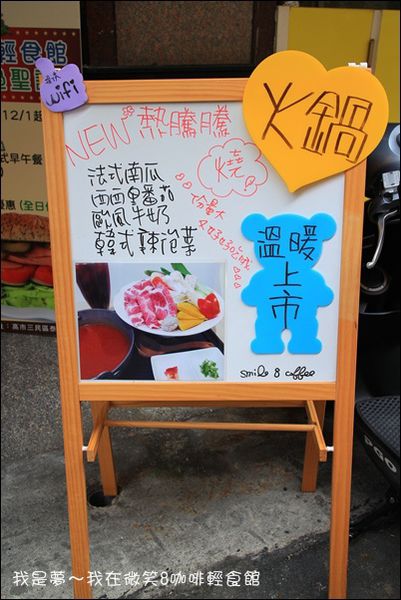 輕食館
聖誕
12/1起
式早午餐
優惠(全日
址:高市三民區
wifi
火鍋
NEW 熱騰騰
燒
法式南瓜
西西里番茄
歐風牛奶
韓式辣泡菜
份量大
又好好吃哦
溫暖
上市
smile 8 coffee
PGO
我是夢～我在微笑8咖啡輕食館